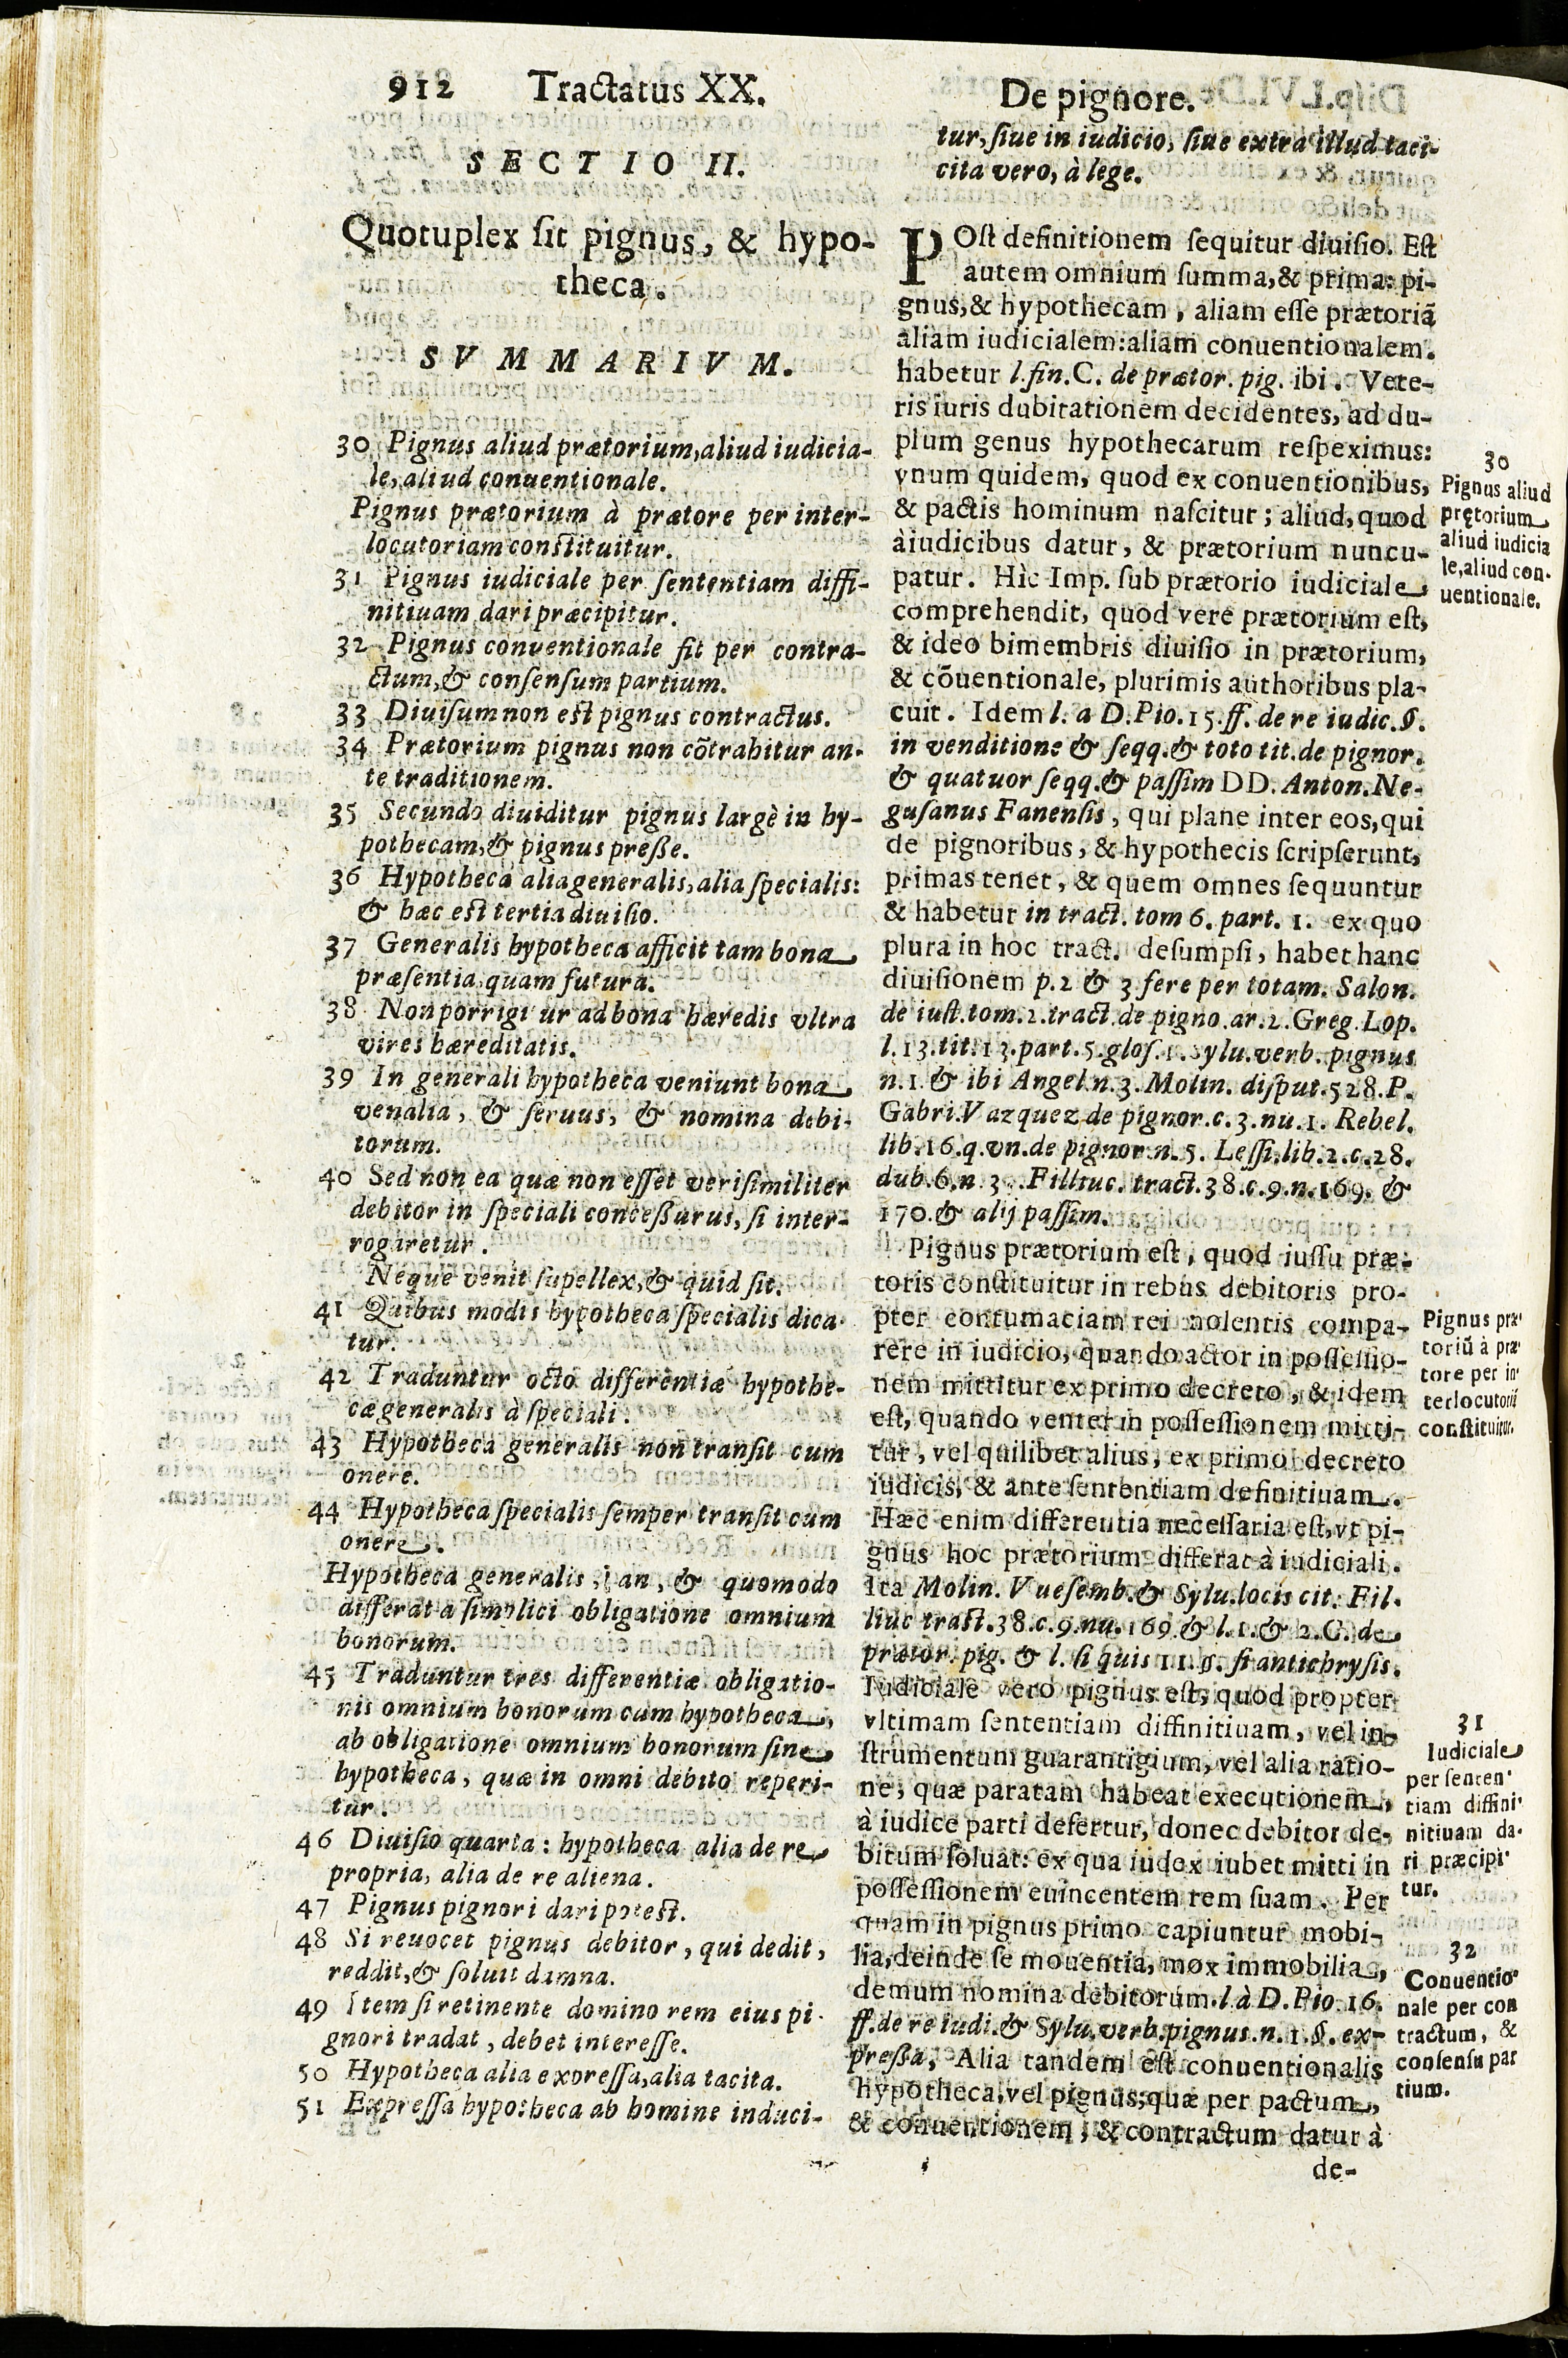 912 Tractatus XX. De pignore.
SECTIO II.
Quotuplex ſit pignus, & hypo-
theca.
SVMMARIVM.
30 Pignus aliud prætorium, aliud iudicia-
le, aliud conuentionale.
Pignus prætorium à prætore per inter-
locutoriam conſtituitur.
31 Pignus iudiciale per ſententiam diffi-
nitiuam dari præcipitur.
32 Pignus conventionale fit per contra-
ctum, & conſenſum partium.
33 Diuiſum non eſt pignus contractus.
34 Prætorium pignus non cõtrahitur an-
te traditionem.
35 Secundo diuiditur pignus largè in hy-
pothecam, & pignus preßе.
36 Hypotheca alia generalis, alia ſpecialis:
& hæc eſt tertia diuiſio.
37 Generalis hypotheca afficit tam bona
præſentia, quam futura.
38 Non porrigi ur ad bona hæredis vltra
vires hæreditatis.
39 In generali hypotheca veniunt bona
venalia, & ſeruus, & nomina debi-
torum.
40 Sed non ea quæ non eſſet veriſimiliter
debitor in ſpeciali conceßurus, ſi inter-
rogaretur.
Neque venit ſupellex, & quid ſit.
41 Quibus modis hypotheca ſpecialis dica-
tur.
42 Traduntur octo differentiæ hypothe-
cæ generalis à ſpeciali.
43 Hypotheca generalis non tranſit cum
onere.
44 Hypotheca ſpecialis ſemper tranſit cum
onere.
Hypotheca generalis, an, & quomodo
differat a ſimplici obligatione omnium
bonorum.
45 Traduntur tres differentiæ obligatio-
nis omnium bonorum cum hypotheca,
ab obligatione omnium bonorum ſine
hypotheca, quæ in omni debito reperi-
tur.
46 Diuiſio quarta: hypotheca alia de re
propria, alia de re aliena.
47 Pignus pignori dari poteſt.
48 Si reuocet pignus debitor, qui dedit,
reddit, & ſoluit damna.
49 Item ſi retinente domino rem eius pi-
gnori tradat, debet intereſſe.
50 Hypotheca alia expreſſa, alia tacita.
51 Expreſſa hypotheca ab homine induci-
tur, ſiue in iudicio, ſiue extra illud taci-
cita vero, à lege.
POſt definitionem ſequitur diuiſio. Eſt
autem omnium ſumma, & prima: pi-
gnus, & hypothecam, aliam eſſe prætoriã
aliam iudicialem: aliam conuentionalem.
habetur l. fin. C. de prætor. pig. ibi. Vete-
ris iuris dubitationem decidentes, ad du-
plum genus hypothecarum reſpeximus:
vnum quidem, quod ex conuentionibus,
& pactis hominum naſcitur; aliud, quod
à iudicibus datur, & prætorium nuncu-
patur. Hìc Imp. ſub prætorio iudiciale
comprehendit, quod vere prætorium eſt,
& ideo bimembris diuiſio in prætorium,
& cõuentionale, plurimis authoribus pla-
cuit. Idem l. a D. Pio. 15. ff. de re iudic. §.
in venditione & ſeqq. & toto tit. de pignor.
& quatuor ſeqq. & paſſim DD. Anton. Ne-
guſanus Fanenſis, qui plane inter eos, qui
de pignoribus, & hypothecis ſcripſerunt,
primas tenet, & quem omnes ſequuntur
& habetur in tract. tom 6. part. 1. ex quo
plura in hoc tract. deſumpſi, habet hanc
diuiſionem p. 2 & 3 fere per totam. Salon.
de iuſt. tom. 2. tract. de pigno. ar. 2. Greg. Lop.
l. 13. tit. 13. part. 5. gloſ. 1. Sylu. verb. pignus
n. 1. & ibi Angel. n. 3. Molin. diſput. 528. P.
Gabri. Vazquez de pignor. c. 3. nu. 1. Rebel.
lib. 16. q. vn. de pignor. n. 5. Leſſi. lib. 2. c. 28.
dub. 6. n. 3 . Filliuc. tract. 38. c. 9. n. 169. &
170. & alij paſſim.
Pignus prætorium eſt, quod iuſſu præ-
toris conſtituitur in rebus debitoris pro-
pter contumaciam rei nolentis compa-
rere in iudicio, quando actor in poſſeſſio-
nem mittitur ex primo decreto, & idem
eſt, quando venter in poſſeſſionem mitti-
tur, vel quilibet alius, ex primo decreto
iudicis, & ante ſententiam definitiuam.
Hæc enim differentia neceſſaria eſt, vt pi-
gnus hoc prætorium differat à iudiciali.
Ita Molin. Vueſemb. & Sylu. locis cit. Fil-
liuc tract. 38. c. 9. nu. 169 & l. 1. & 2. C. de
prætor. pig. & l. ſi quis 11. §. ſi antichryſis.
Iudiciale vero pignus eſt, quod propter
vltimam ſententiam diffinitiuam, vel in-
ſtrumentum guarantigium, vel alia ratio-
ne, quæ paratam habeat executionem,
à iudice parti defertur, donec debitor de-
bitum ſoluat: ex qua iudex iubet mitti in
poſſeſſionem euincentem rem ſuam. Per
quam in pignus primo capiuntur mobi-
lia, deinde ſe mouentia, mox immobilia,
demum nomina debitorum. l. à D. Pio. 16.
ff. de re iudi. & Sylu. verb. pignus. n. 1. §. ex-
preßa, Alia tandem eſt conuentionalis
hypotheca, vel pignus, quæ per pactum,
& conuentionem, & contractum datur à
de-
30
Pignus aliud
prętorium
aliud iudicia
le, aliud con-
uentionale.
Pignus præ-
toriũ à præ-
tore per in-
terlocutoriã
conſtituitur.
31
Iudiciale
per ſenten-
tiam diffini-
nitiuam da-
ri præcipi-
tur.
32
Conuentio-
nale per con
tractum, &
conſenſu par
tium.